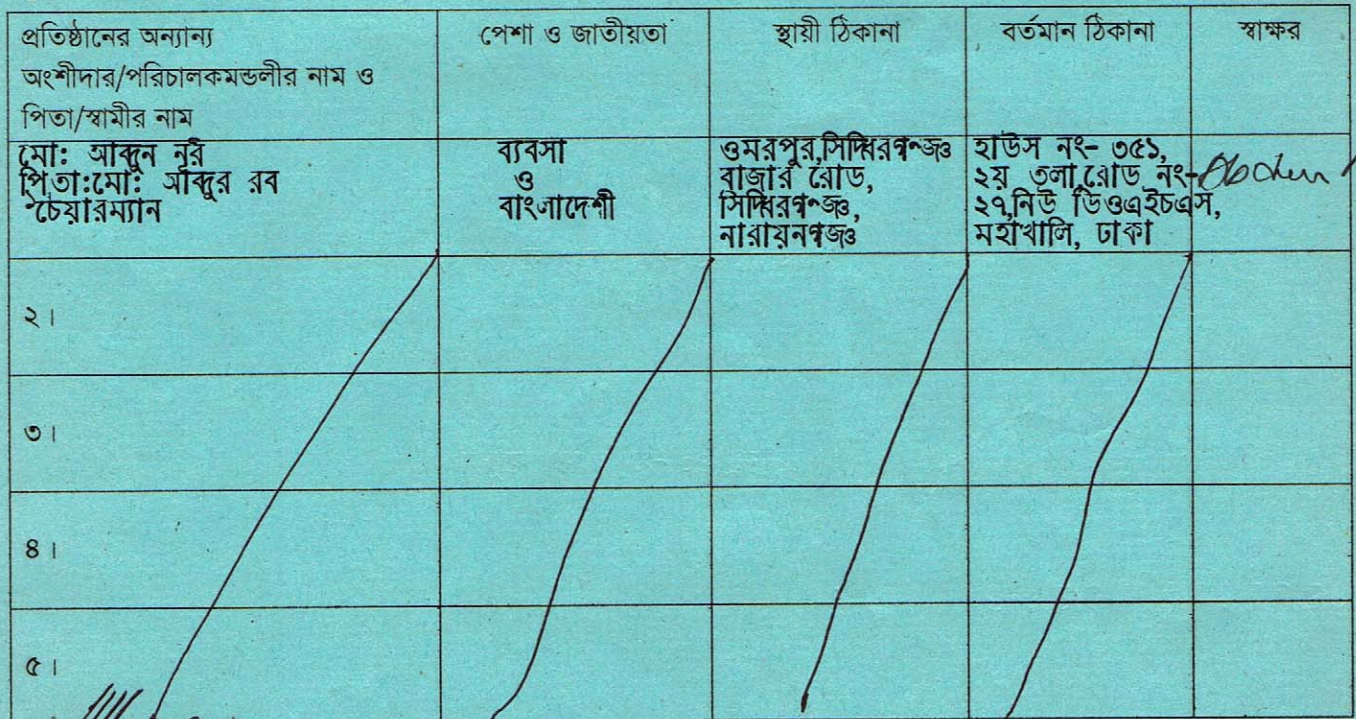 প্রতিষ্ঠানের অন্যান্য
অংশীদার/পরিচালকমন্ডলীর নাম ও
পিতা/স্বামীর নাম
পেশা ও জাতীয়তা
স্থায়ী ঠিকানা
বর্তমান ঠিকানা
স্বাক্ষর
মো: আব্দুন নূর
পিতা:মো: আব্দুর রব
চেয়ারম্যান
ব্যবসা
ও
বাংলাদেশী
ওমরপুর,সিদ্ধিরগন্জ
বাজার রোড,
সিদ্ধিরগন্জ,
নারায়নগন্জ
হাউস নং- ৩৫১,
২য় তলা,রোড নং-
২৭,নিউ ডিওএইচএস,
মহাখালি, ঢাকা
২।
৩।
৪।
৫।